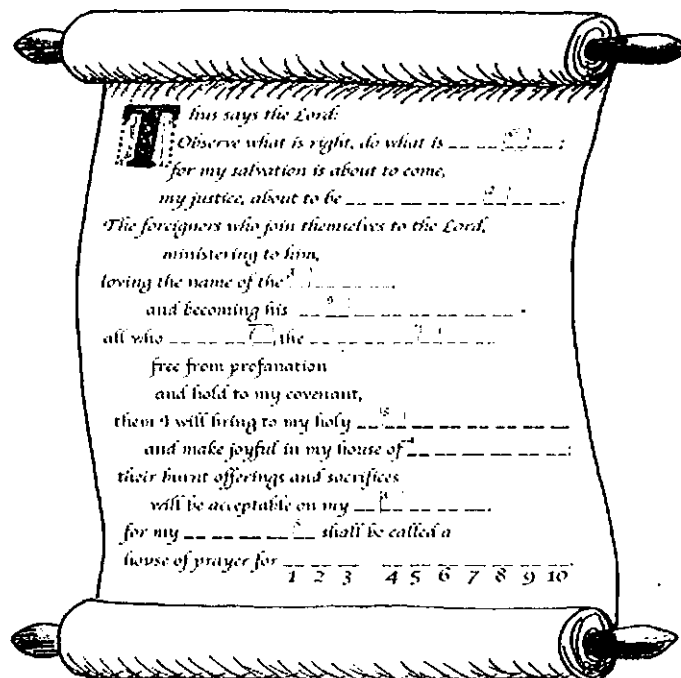 Thus says the Lord:
Observe what is right, do what is __ __ __ __ __ ;
for my salvation is about to come,
my justice, about to be __ __ __ __ __ __ __ __ .
The foreigners who join themselves to the Lord,
ministering to him,
loving the name of the __ __ __ __ ,
and becoming his __ __ __ __ __ __ __ __ .
all who __ __ __ __ the __ __ __ __ __ __ __
free from profanation
and hold to my covenant,
them I will bring to my holy __ __ __ __ __ __ __ __
and make joyful in my house of __ __ __ __ __ __ ;
their burnt offerings and sacrifices
will be acceptable on my __ __ __ __ __ ,
for my __ __ __ __ __ shall be called a
house of prayer for __ __ __ __ __ __ __ __ __ __
1 2 3 4 5 6 7 8 9 10